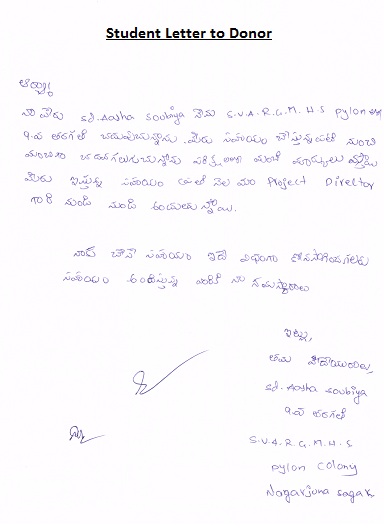 Student Letter to Donor
అయ్యా!
నా పేరు sd. Aasha Soubiya నేను S.V.A.R.G.M.H.S pylon
9-వ తరగతి చదువుచున్నాను. మీరు సహాయం చేస్తున్నందు నుంచి
మంచిగా చదవగలుగుచున్నాను మంచి మార్కులు
మీరు ఇస్తున్న సహాయం నెల మా Project Director
గారి నుండి అందుతున్నాయి.
నాకు చేసే సహాయం ఇదే విధంగా కొనసాగించగలరు
సహాయం అందిస్తున్న వారికి నా నమస్కారాలు
ఇట్లు,
తమ విధేయురాలు,
sd. Aasha Soubiya
9-వ తరగతి
S.V.A.R.G.M.H.S
pylon colony
Nagarjuna sagar.